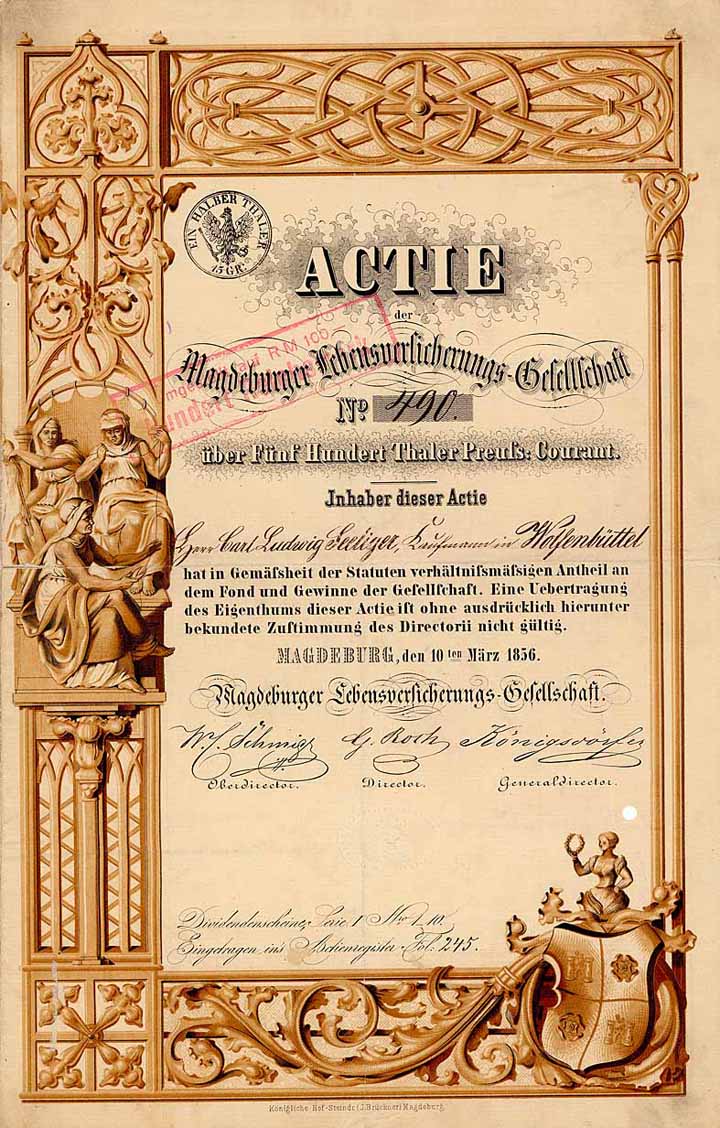 EIN HALBER THALER
15 GR.
ACTIE
der
Magdeburger Lebensversicherungs-Gesellschaft
No. 490.
über Fünf Hundert Thaler Preuſs: Courant.
Jnhaber dieser Actie
Herr Carl Ludwig Seeliger, Kaufmann in Wolfenbüttel
hat in Gemäſsheit der Statuten verhältniſsmäſsigen Antheil an
dem Fond und Gewinne der Geſellſchaft. Eine Uebertragung
des Eigenthums dieser Actie iſt ohne ausdrücklich hierunter
bekundete Zuſtimmung des Directorii nicht gültig.
MAGDEBURG, den 10ten März 1856.
Magdeburger Lebensverſicherungs-Geſellſchaft.
G. Koch
Oberdirector. Director. Generaldirector.
Dividendenscheine, Serie I No. 1-10.
Eingetragen in's Actienregister Fol. 245.
RM 100
Königliche Hof-Steindr. (J. Brückner) Magdeburg.